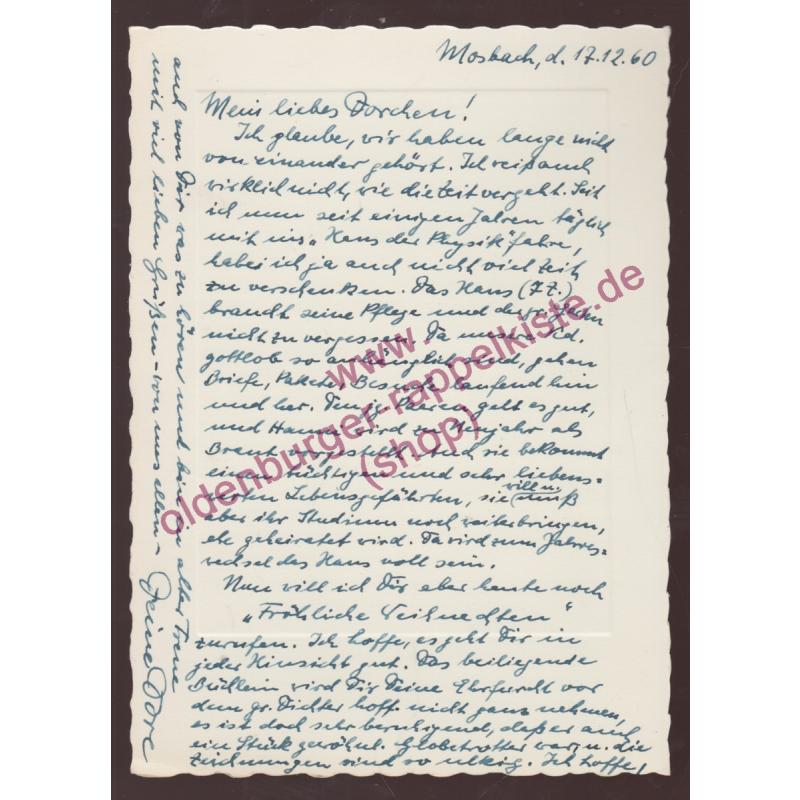 Mosbach, d. 17.12.60
Mein liebes Dorchen!
Ich glaube, wir haben lange nicht
von einander gehört. Ich weiß auch
wirklich nicht, wie die Zeit vergeht. Seit
ich nun seit einigen Jahren täglich
mit ins „Haus der Physik" fahre,
habe ich ja auch nicht viel Zeit
zu verschenken. Das Haus (7 Z.)
braucht seine Pflege und der Garten
nicht zu vergessen. Da unsere Kd.
gottlob so anhänglich sind, gehen
Briefe, Pakete, Besuche laufend hin
und her. Den jg. Paaren geht es gut,
und Hanna wird zu Neujahr als
Braut vorgestellt. Und sie bekommt
einen tüchtigen und sehr liebens-
werten Lebensgefährten, sie will u. muß
aber ihr Studium noch weiterbringen,
ehe geheiratet wird. Da wird zum Jahres-
wechsel das Haus voll sein.
Nun will ich Dir aber heute noch
„Fröhliche Weihnachten"
zurufen. Ich hoffe, es geht Dir in
jeder Hinsicht gut. Das beiliegende
Büchlein wird Dir Deine Ehrfurcht vor
dem gr. Dichter hoff. nicht ganz nehmen,
es ist doch sehr beruhigend, daß er auch
ein Stück gewöhnl. Globetrotter war, u. die
Zeichnungen sind so ulkig. Ich hoffe,
auch von Dir was zu hören und bin in alter Treue
mit viel lieben Grüßen – von uns allen –
Deine Dore
www.
oldenburger-rappelkiste.de
(shop)